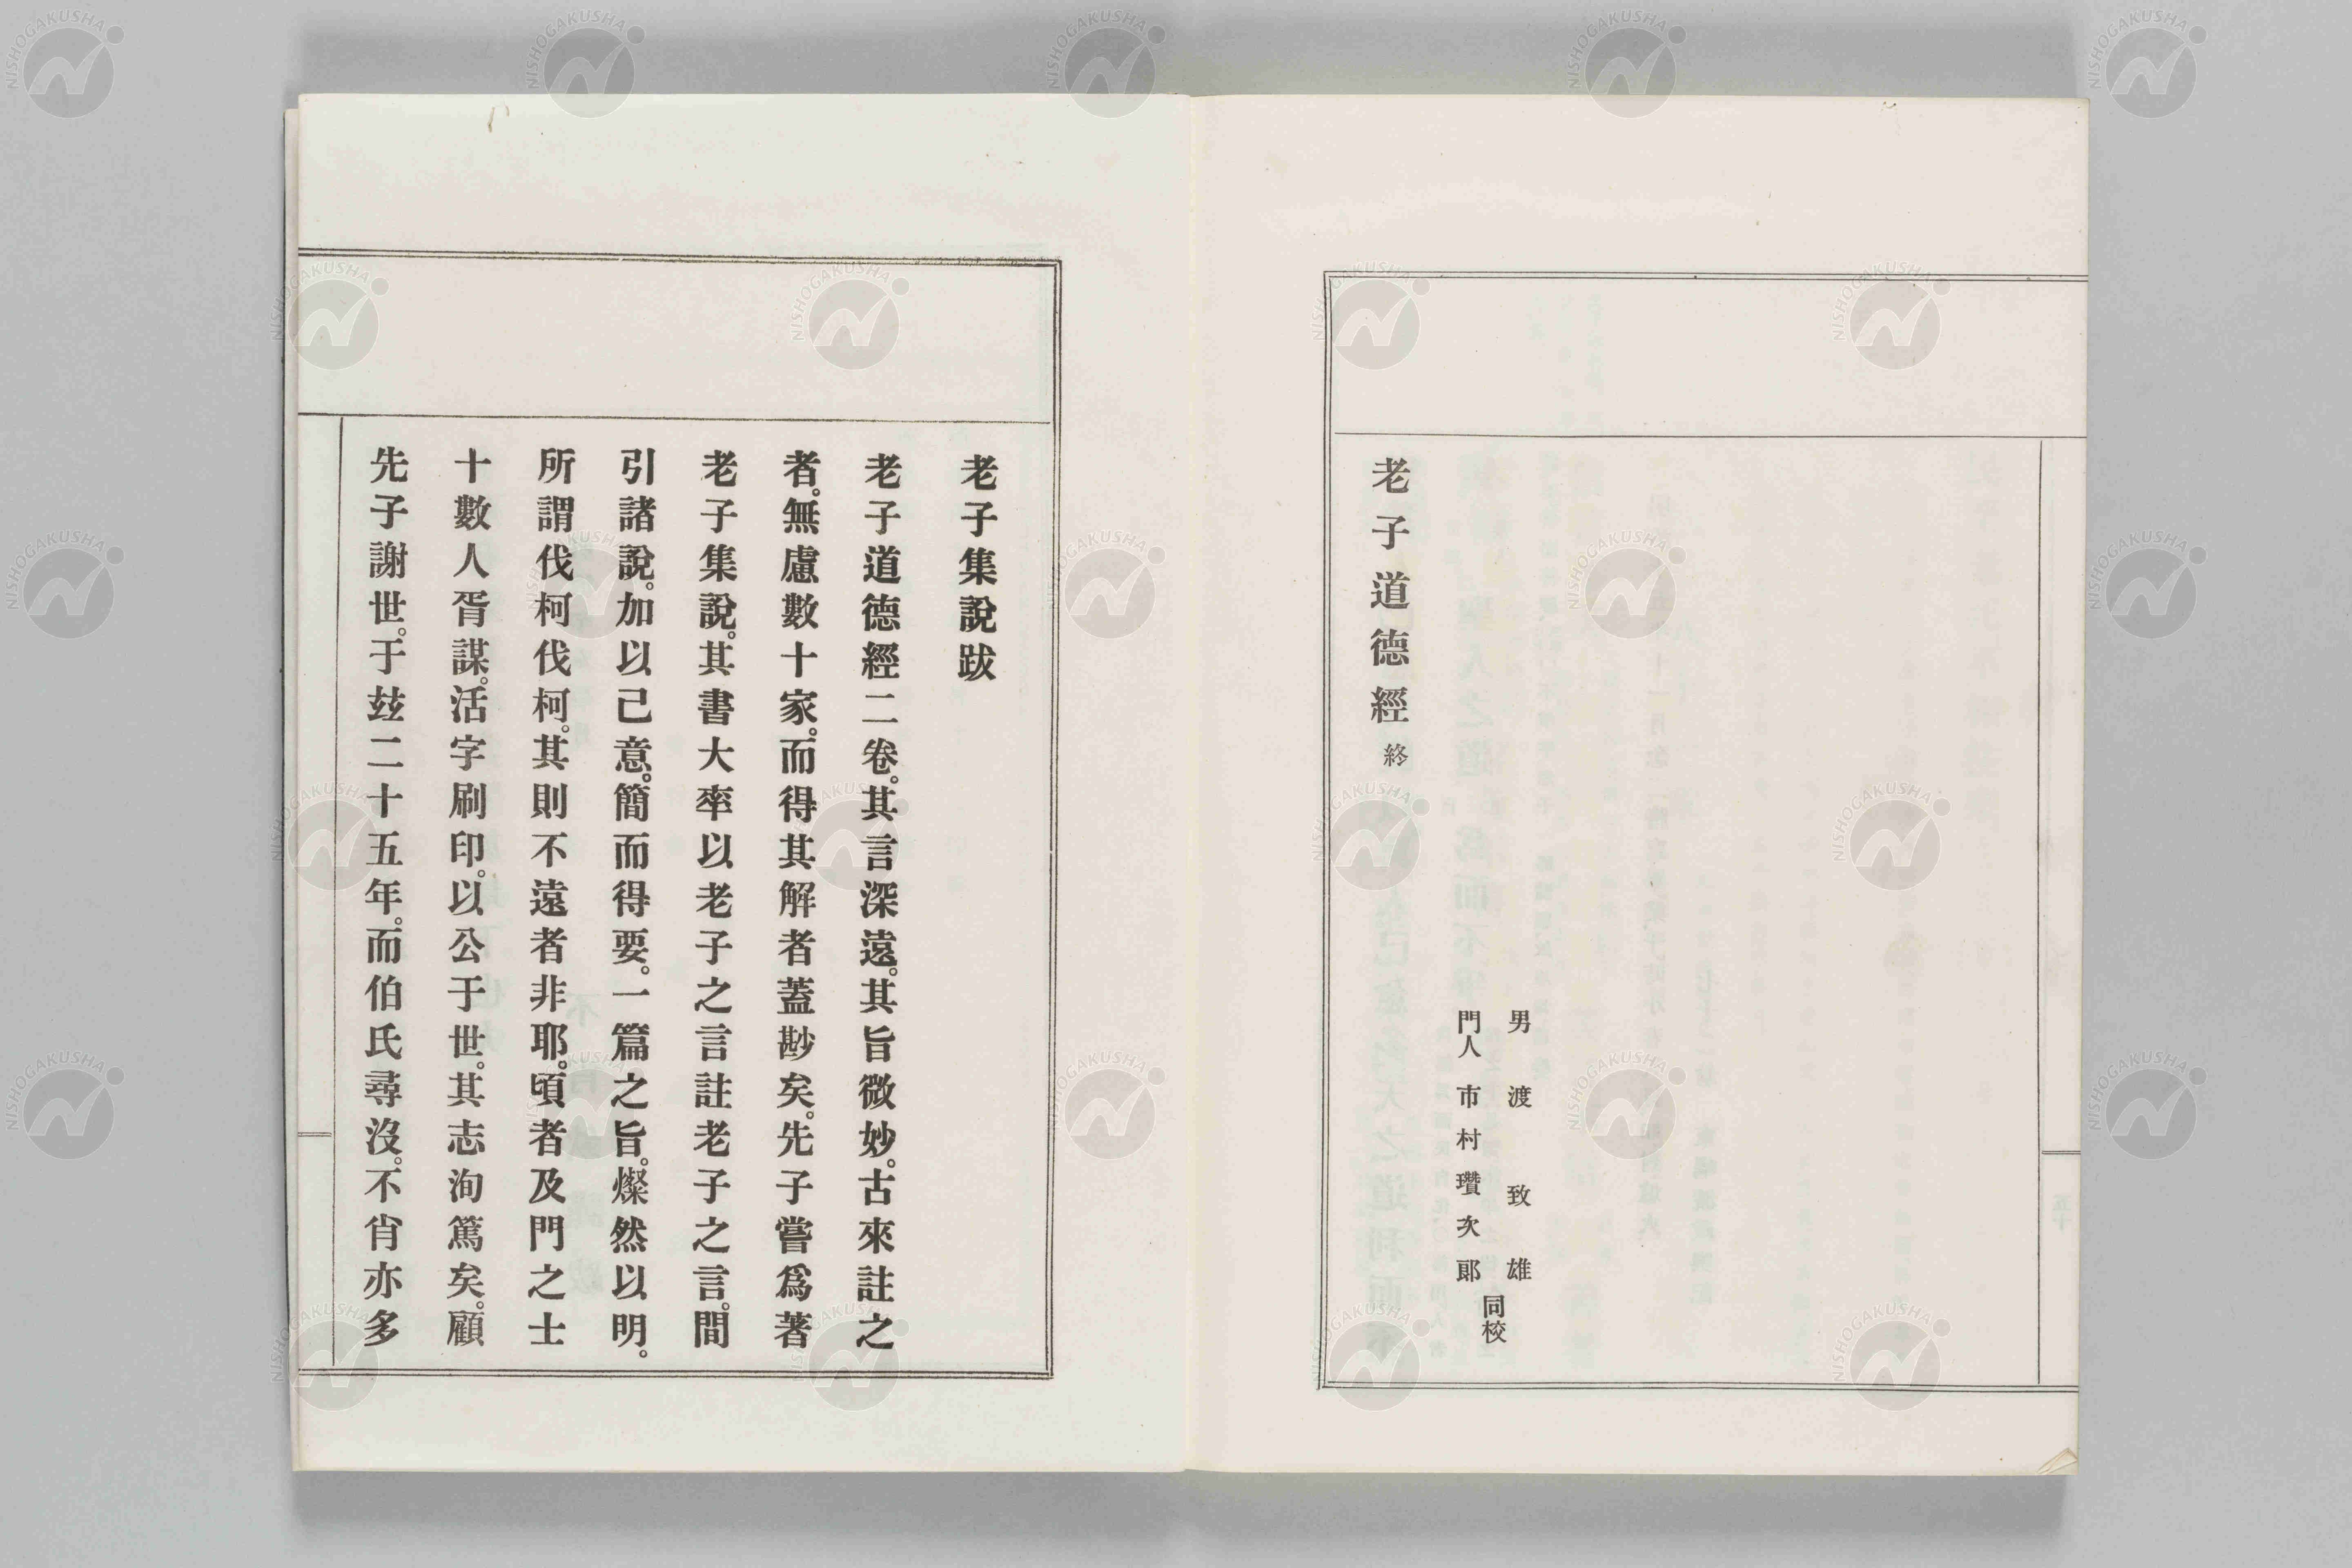 男 渡 致 雄
門人 市 村 瓚 次 郎
同校
老子道德經 終
老子集說跋
老子道德經二卷。其言深遠。其旨微妙。古來註之
者。無慮數十家。而得其解者蓋尠矣。先子嘗爲著
老子集說。其書大率以老子之言註老子之言。間
引諸說。加以己意。簡而得要。一篇之旨。燦然以明。
所謂伐柯伐柯。其則不遠者非耶。頃者及門之士
十數人胥謀。活字刷印。以公于世。其志洵篤矣。顧
先子謝世。于玆二十五年。而伯氏尋沒。不肯亦多
NISHOGAKUSHA